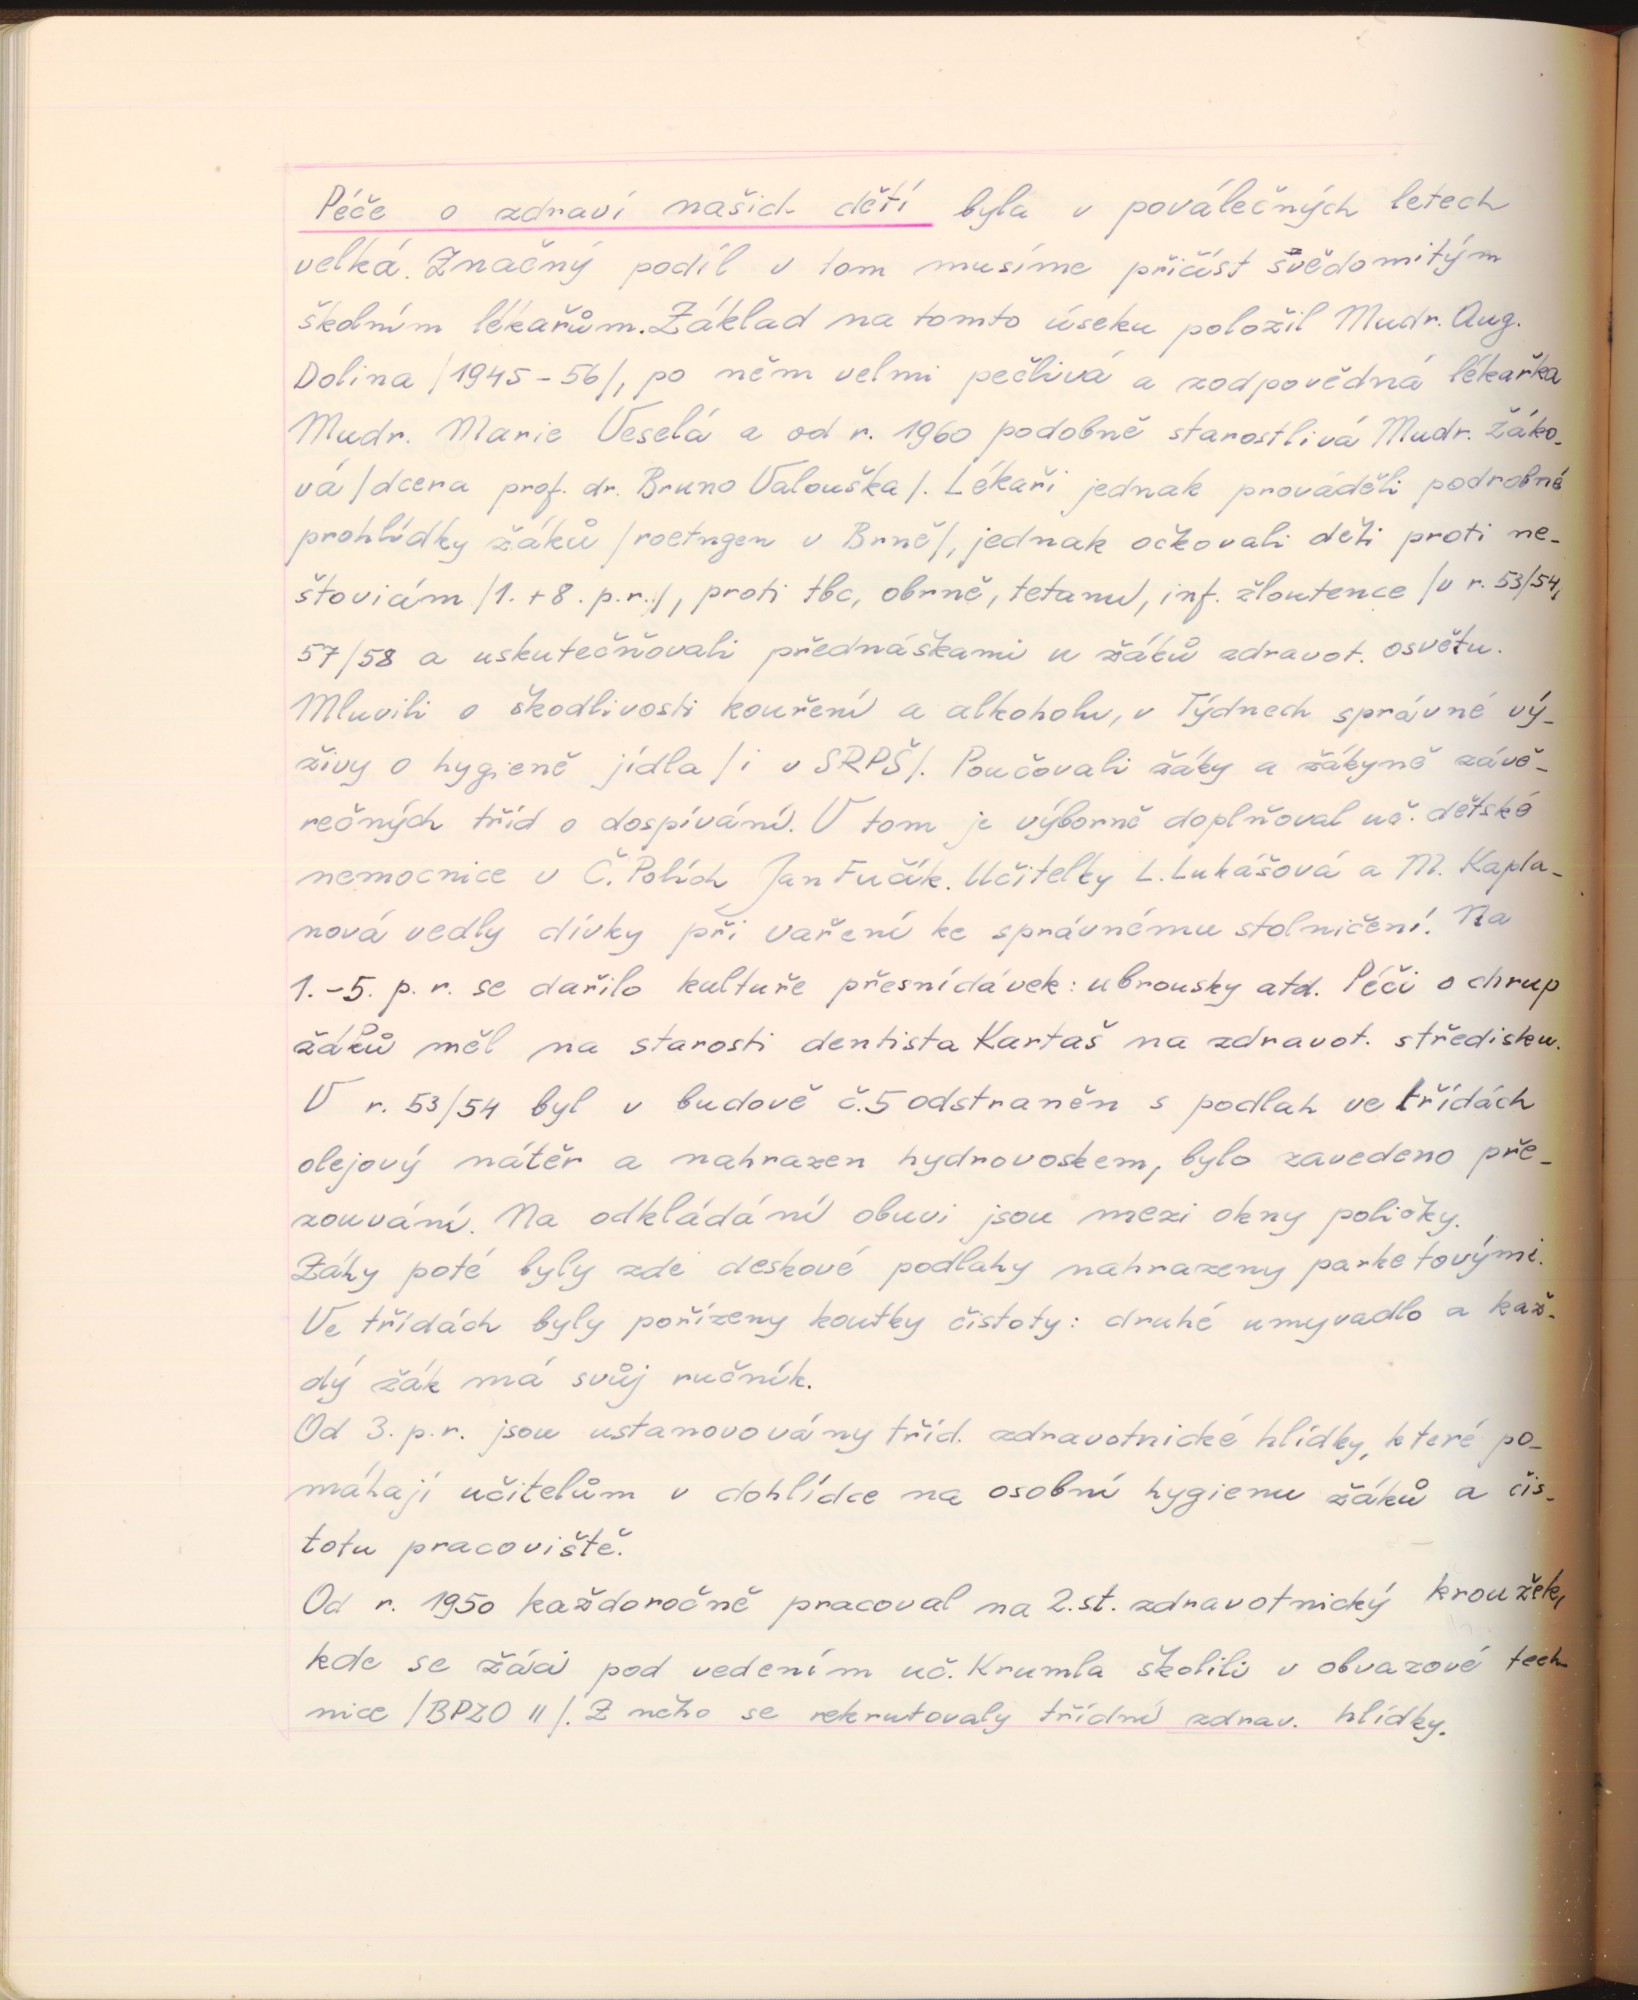 Péče o zdraví našich dětí byla v poválečných letech
velká. Značný podíl v tom musíme přičíst svědomitým
školním lékařům. Základ na tomto úseku položil Mudr. Aug.
Dolina /1945-56/, po něm velmi pečlivá a zodpovědná lékařka
Mudr. Marie Veselá a od r. 1960 podobně starostlivá Mudr. Žáko-
vá /dcera prof. dr. Bruno Valouška/. Lékaři jednak prováděli podrobné
prohlídky žáků /roetngen v Brně/, jednak očkovali děti proti ne-
štovicím /1. + 8. p.r./, proti tbc, obrně, tetanu, inf. žloutence /v r. 53/54,
57/58 a uskutečňovali přednáškami u žáků zdravot. osvětu.
Mluvili o škodlivosti kouření a alkoholu, v Týdnech správné vý-
živy o hygieně jídla /i v SRPŠ/. Poučovali žáky a žákyně závě-
rečných tříd o dospívání. V tom je výborně doplňoval uč. dětské
nemocnice v Č. Polích Jan Fučík. Učitelky L. Lukášová a M. Kapla-
nová vedly dívky při vaření ke správnému stolničení. Na
1.-5. p. r. se dařilo kultuře přesnídávek: ubrousky atd. Péči o chrup
žáků měl na starosti dentista Kartaš na zdravot. středisku.
V r. 53/54 byl v budově č.5 odstraněn s podlah ve třídách
olejový nátěr a nahrazen hydrovoskem, bylo zavedeno pře-
zouvání. Na odkládání obuvi jsou mezi okny poličky.
Záhy poté byly zde deskové podlahy nahrazeny parketovými.
Ve třídách byly pořízeny koutky čistoty: druhé umyvadlo a kaž-
dý žák má svůj ručník.
Od 3. p. r. jsou ustanovovány tříd. zdravotnické hlídky, které po-
máhají učitelům v dohlídce na osobní hygienu žáků a čis-
totu pracoviště.
Od r. 1950 každoročně pracoval na 2. st. zdravotnický kroužek,
kde se žáci pod vedením uč. Krumla školili v obvazové tech-
nice /BPZO II/. Z něho se rekrutovaly třídní zdrav. hlídky.